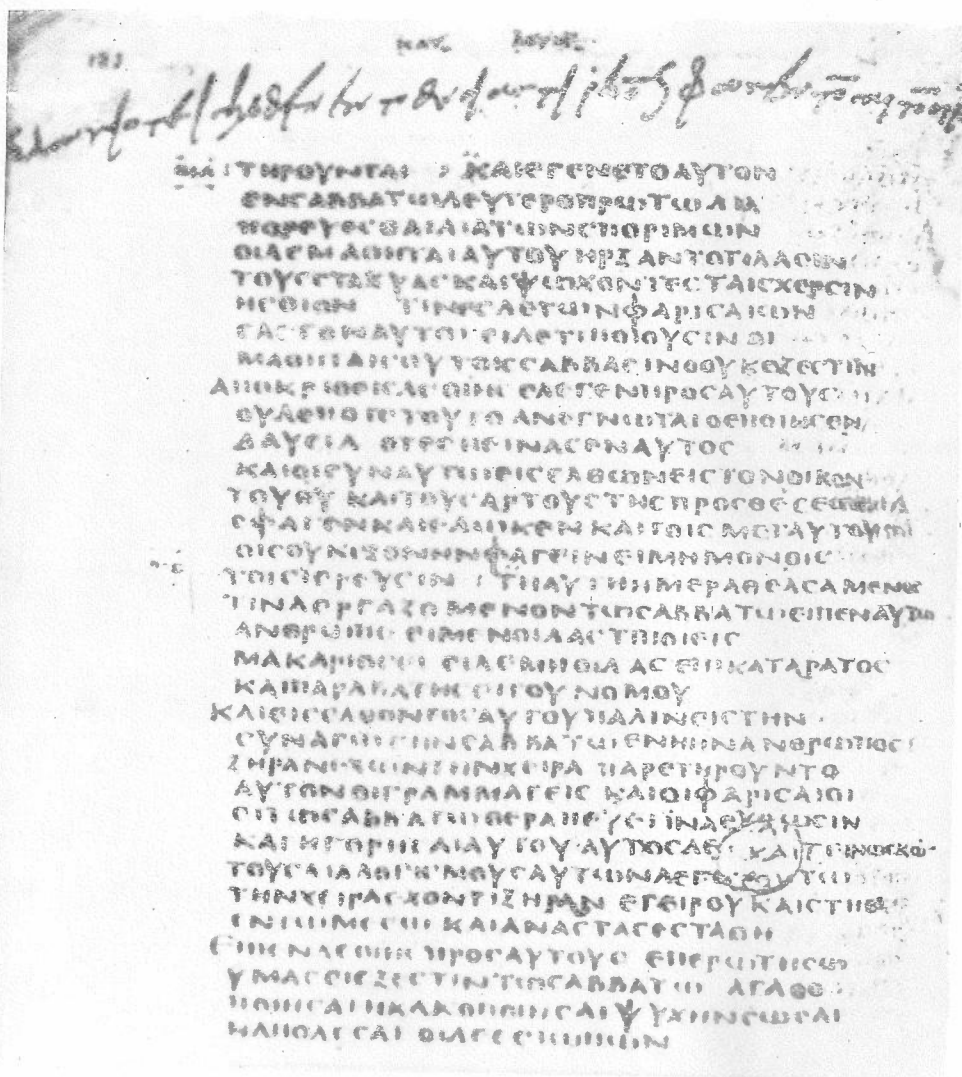 ΤΗΡΟΥΝΤΑΙ : ΚΑΙ ΕΓΕΝΕΤΟ ΑΥΤΟΝ
ΕΝ ΣΑΒΒΑΤΩ ΔΕΥΤΕΡΟΠΡΩΤΩ
ΠΟΡΕΥΕΣΘΑΙ ΔΙΑ ΤΩΝ ΣΠΟΡΙΜΩΝ
ΟΙ ΔΕ ΜΑΘΗΤΑΙ ΑΥΤΟΥ ΗΡΞΑΝΤΟ ΤΙΛΛΕΙΝ
ΤΟΥΣ ΣΤΑΧΥΑΣ ΚΑΙ ΨΩΧΟΝΤΕΣ ΤΑΙΣ ΧΕΡΣΙΝ
ΗΣΘΙΟΝ ΤΙΝΕΣ ΔΕ ΤΩΝ ΦΑΡΙΣΑΙΩΝ
ΕΛΕΓΟΝ ΑΥΤΩ ΕΙΔΕ ΤΙ ΠΟΙΟΥΣΙΝ ΟΙ
ΜΑΘΗΤΑΙ ΣΟΥ ΤΟΙΣ ΣΑΒΒΑΣΙΝ Ο ΟΥΚ ΕΞΕΣΤΙΝ
ΑΠΟΚΡΙΘΕΙΣ ΔΕ Ο ΙΗΣ ΕΛΕΓΕΝ ΠΡΟΣ ΑΥΤΟΥΣ
ΟΥΔΕΠΟΤΕ ΤΟΥΤΟ ΑΝΕΓΝΩΤΑΙ Ο ΕΠΟΙΗΣΕΝ
ΔΑΥΕΙΔ ΟΤΕ ΕΠΕΙΝΑΣΕΝ ΑΥΤΟΣ
ΚΑΙ ΟΙ ΣΥΝ ΑΥΤΩ ΕΙΣΕΛΘΩΝ ΕΙΣ ΤΟΝ ΟΙΚΟΝ
ΤΟΥ ΘΥ ΚΑΙ ΤΟΥΣ ΑΡΤΟΥΣ ΤΗΣ ΠΡΟΣΘΕΣΕΩΣ
ΕΦΑΓΕΝ ΚΑΙ ΕΔΩΚΕΝ ΚΑΙ ΤΟΙΣ ΜΕΤ ΑΥΤΟΥ
ΟΙΣ ΟΥΚ ΕΞΟΝ ΗΝ ΦΑΓΕΙΝ ΕΙ ΜΗ ΜΟΝΟΙΣ
ΤΟΙΣ ΙΕΡΕΥΣΙΝ : ΤΗ ΑΥΤΗ ΗΜΕΡΑ ΘΕΑΣΑΜΕΝΟΣ
ΤΙΝΑ ΕΡΓΑΖΟΜΕΝΟΝ ΤΩ ΣΑΒΒΑΤΩ ΕΙΠΕΝ ΑΥΤΩ
ΑΝΘΡΩΠΕ ΕΙ ΜΕΝ ΟΙΔΑΣ ΤΙ ΠΟΙΕΙΣ
ΜΑΚΑΡΙΟΣ ΕΙ ΕΙ ΔΕ ΜΗ ΟΙΔΑΣ ΕΠΙΚΑΤΑΡΑΤΟΣ
ΚΑΙ ΠΑΡΑΒΑΤΗΣ ΕΙ ΤΟΥ ΝΟΜΟΥ
ΚΑΙ ΕΙΣΕΛΘΟΝΤΟΣ ΑΥΤΟΥ ΠΑΛΙΝ ΕΙΣ ΤΗΝ
ΣΥΝΑΓΩΓΗΝ ΣΑΒΒΑΤΩ ΕΝ Η ΗΝ ΑΝΘΡΩΠΟΣ
ΞΗΡΑΝ ΕΧΩΝ ΤΗΝ ΧΕΙΡΑ ΠΑΡΕΤΗΡΟΥΝΤΟ
ΑΥΤΟΝ ΟΙ ΓΡΑΜΜΑΤΕΙΣ ΚΑΙ ΟΙ ΦΑΡΙΣΑΙΟΙ
ΕΙ ΤΩ ΣΑΒΒΑΤΩ ΘΕΡΑΠΕΥΕΙ ΙΝΑ ΕΥΡΩΣΙΝ
ΚΑΤΗΓΟΡΗΣΑΙ ΑΥΤΟΥ ΑΥΤΟΣ ΔΕ ΓΕΙΝΩΣΚΩ
ΤΟΥΣ ΔΙΑΛΟΓΙΣΜΟΥΣ ΑΥΤΩΝ ΛΕΓΕΙ ΤΩ
ΤΗΝ ΧΕΙΡΑ ΕΧΟΝΤΙ ΞΗΡΑΝ ΕΓΕΙΡΟΥ ΚΑΙ ΣΤΗΘΙ
ΕΝ ΤΩ ΜΕΣΩ ΚΑΙ ΑΝΑΣΤΑΣ ΕΣΤΑΘΗ
ΕΙΠΕΝ ΔΕ Ο ΙΗΣ ΠΡΟΣ ΑΥΤΟΥΣ ΕΠΕΡΩΤΗΣΩ
ΥΜΑΣ ΕΙ ΕΞΕΣΤΙΝ ΤΩ ΣΑΒΒΑΤΩ ΑΓΑΘΟ
ΠΟΙΗΣΑΙ Η ΚΑΚΟΠΟΙΗΣΑΙ ΨΥΧΗΝ ΣΩΣΑΙ
Η ΑΠΟΛΕΣΑΙ ΟΙ ΔΕ ΕΣΙΩΠΩΝ